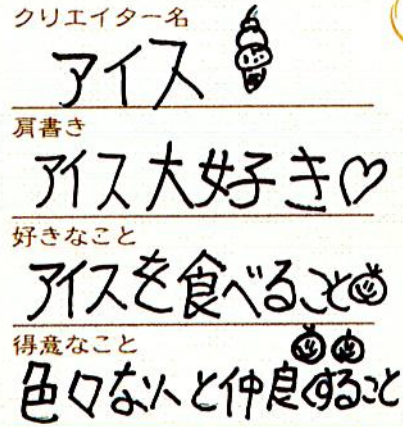 クリエイター名
アイス
肩書き
アイス大好き♡
好きなこと
アイスを食べること
得意なこと
色々な人と仲良くすること